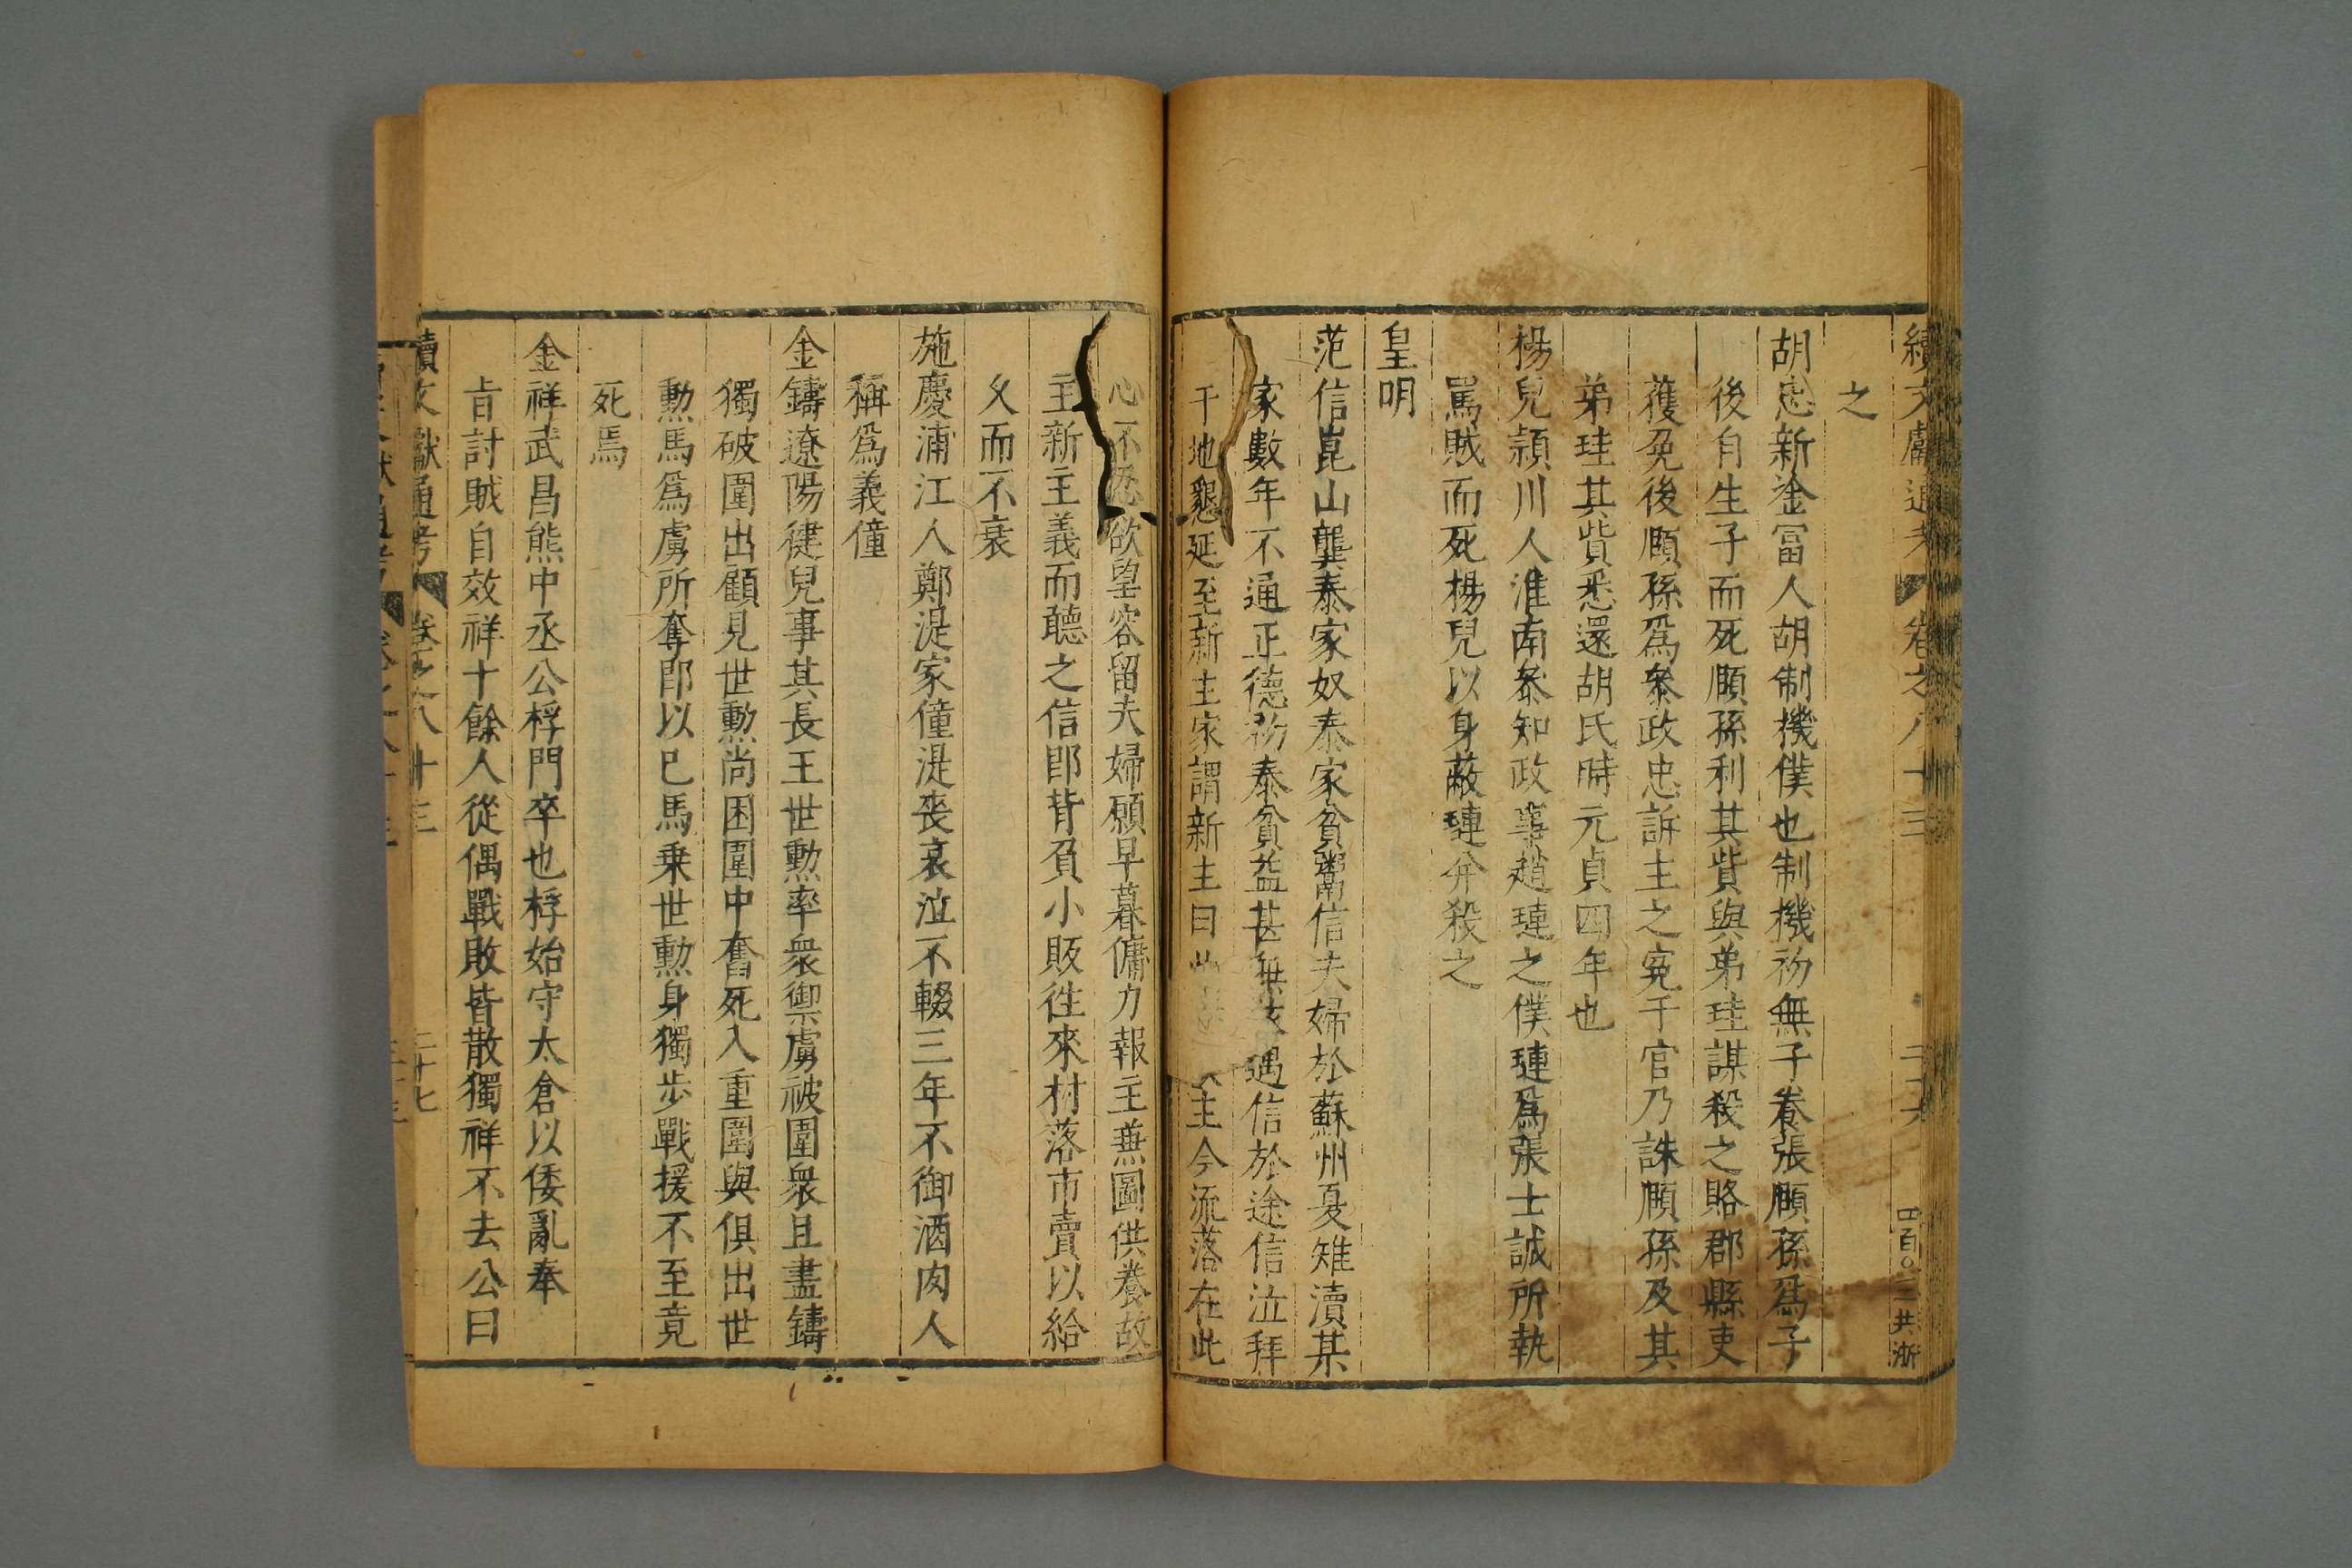 續文獻通考 卷之八十三
之
胡忠新淦富人胡制機僕也制機初無子養張願孫爲子
後自生子而死願孫利其貲與弟珪謀殺之賂郡縣吏
獲免後願孫爲叅政忠訴主之寃于官乃誅願孫及其
弟珪其貲悉還胡氏時元貞四年也
楊兒潁川人淮南叅知政事趙璉之僕璉爲張士誠所執
罵賊而死楊兒以身蔽璉幷殺之
皇明
范信崑山龔泰家奴泰家貧鬻信夫婦於蘇州戞雉瀆某
家數年不通正德初泰貧益甚無 遇信於途信泣拜
于地懇延至新主家謂新主曰 主今流落在此
心不忍欲望容留夫婦願早暮傭力報主無圖供養故
主新主義而聽之信即背負小販徃來村落市賣以給
久而不衰
施慶浦江人鄭湜家僮湜丧哀泣不輟三年不御酒肉人
稱爲義僮
金鑄遼陽健兒事其長王世勲率衆禦虜被圍衆且盡鑄
獨破圍出顧見世勲尚困圍中奮死入重圍與俱出世
勲馬爲虜所奪即以巳馬乗世勲身獨步戰援不至竟
死焉
金祥武昌熊中丞公桴門卒也桴始守太倉以倭亂奉
㫖討賊自效祥十餘人從偶戰敗皆散獨祥不去公曰
續文獻通考 卷之八十三 二十七